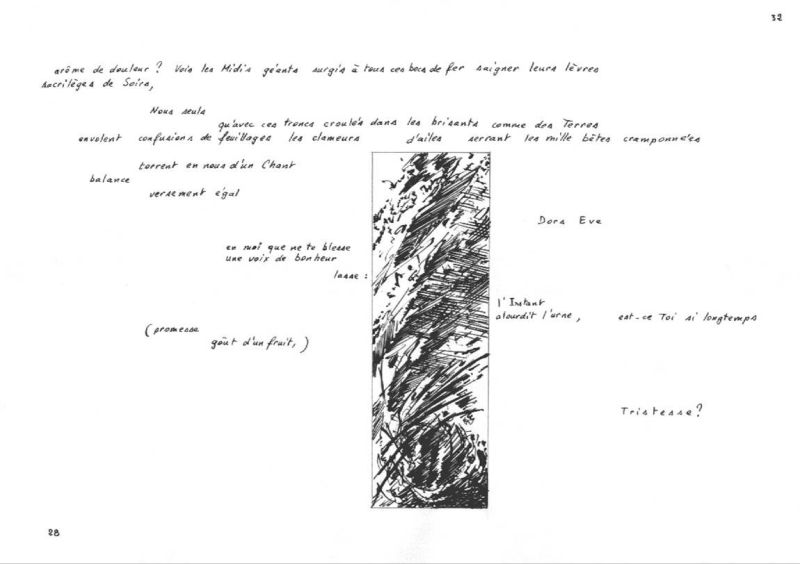 32
arôme de douleur ? Vois les Midis géants surgis à tous ces becs de fer saigner leurs lèvres
sacrilèges de Soirs,
Nous seuls
qu'avec ces troncs croulés dans les brisants comme des Terres
envolent confusions de feuillages les clameurs d'ailes serrant les mille bêtes cramponnées
torrent en nous d'un Chant
balance
versement égal
Dors Eve
en moi que ne te blesse
une voix de bonheur
lasse :
l'Instant
alourdit l'urne, est-ce Toi si longtemps
(promesse
goût d'un fruit, )
Tristesse ?
28